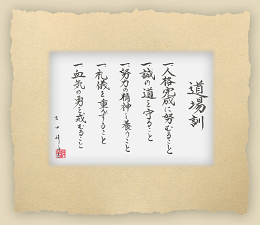 道場訓
一、人格完成に努むること
一、誠の道を守ること
一、努力の精神を養うこと
一、礼儀を重んずること
一、血気の勇を戒むること